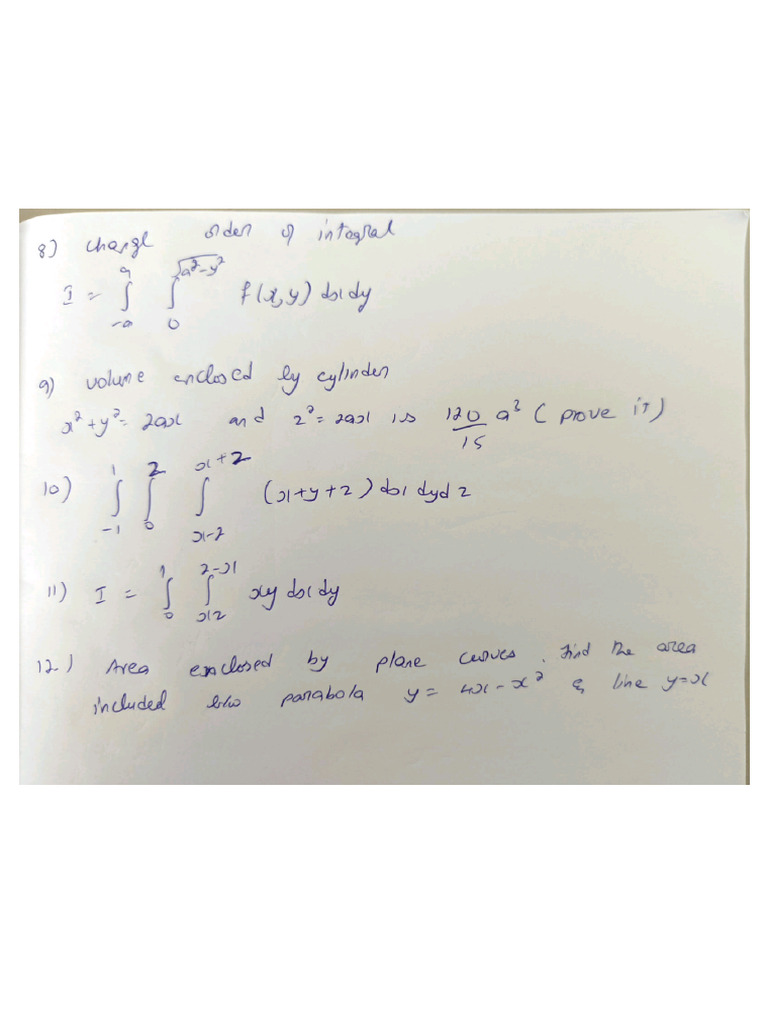 8) change order of integral
I = ∫_{-a}^{a} ∫_{0}^{√a²-y²} f(x,y) dx dy
9) volume enclosed by cylinder
x²+y²= 2ax and z²= 2ax is 120/15 a³ ( prove it)
10) ∫_{-1}^{1} ∫_{0}^{2} ∫_{x-2}^{x+2} (x+y+2) dx dy dz
11) I = ∫_{0}^{1} ∫_{x2}^{2-x} xy dx dy
12.) Area enclosed by plane curves. Find the area
included b/w parabola y = 4x-x² & line y=x